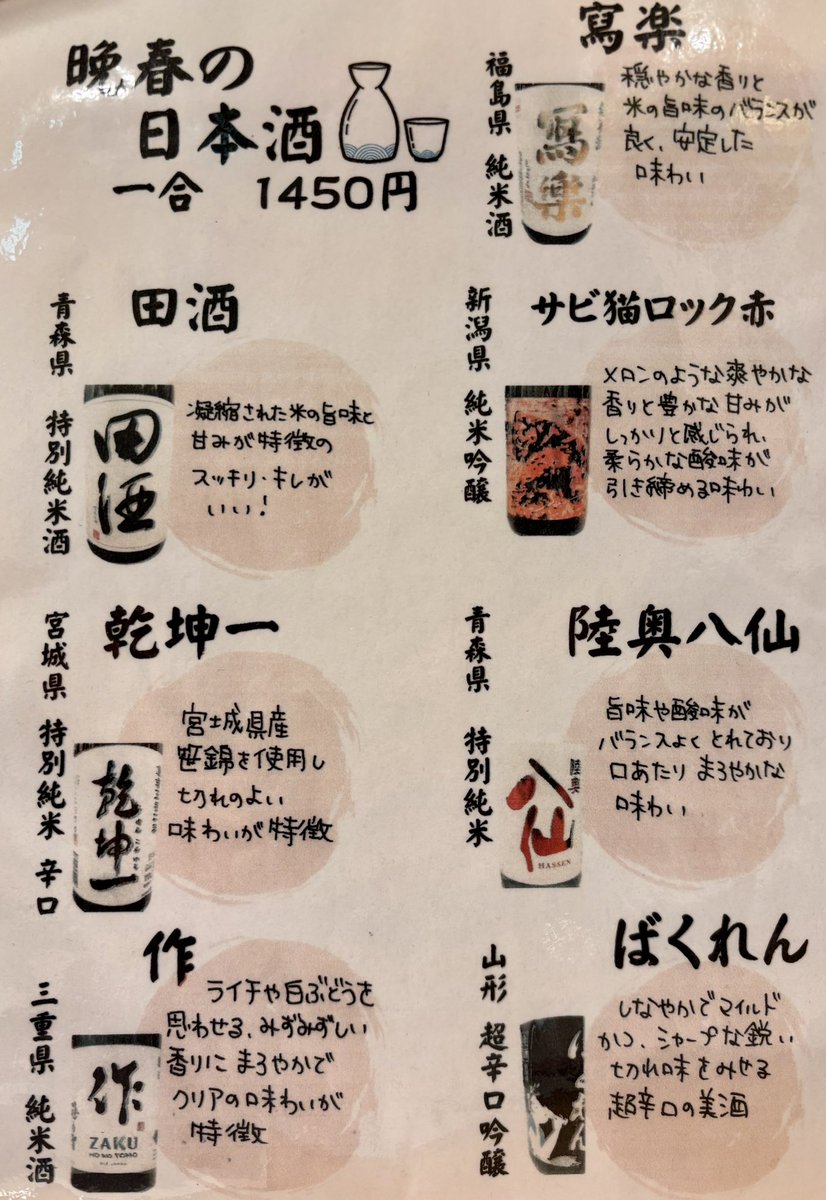 晩春の
日本酒
一合 1450円
田酒
青森県 特別純米酒
田酒
凝縮された米の旨味と
甘みが特徴の
スッキリ・キレが
いい！
乾坤一
宮城県 特別純米 辛口
乾坤一
宮城県産
笹錦を使用し
切れのよい
味わいが特徴
作
三重県 純米酒
作
ZAKU
ライチや白ぶどうを
思わせる、みずみずしい
香りにまろやかで
クリアの味わいが
特徴
寫楽
福島県 純米酒
寫樂
穏やかな香りと
米の旨味のバランスが
良く、安定した
味わい
サビ猫ロック赤
新潟県 純米吟醸
メロンのような爽やかな
香りと豊かな甘みが
しっかりと感じられ、
柔らかな酸味が
引き締める味わい
陸奥八仙
青森県 特別純米
陸奥
八仙
HASSEN
旨味や酸味が
バランスよくとれており
口あたりまろやかな
味わい
ばくれん
山形 超辛口吟醸
しなやかでマイルド
かつ、シャープな鋭い
切れ味をみせる
超辛口の美酒